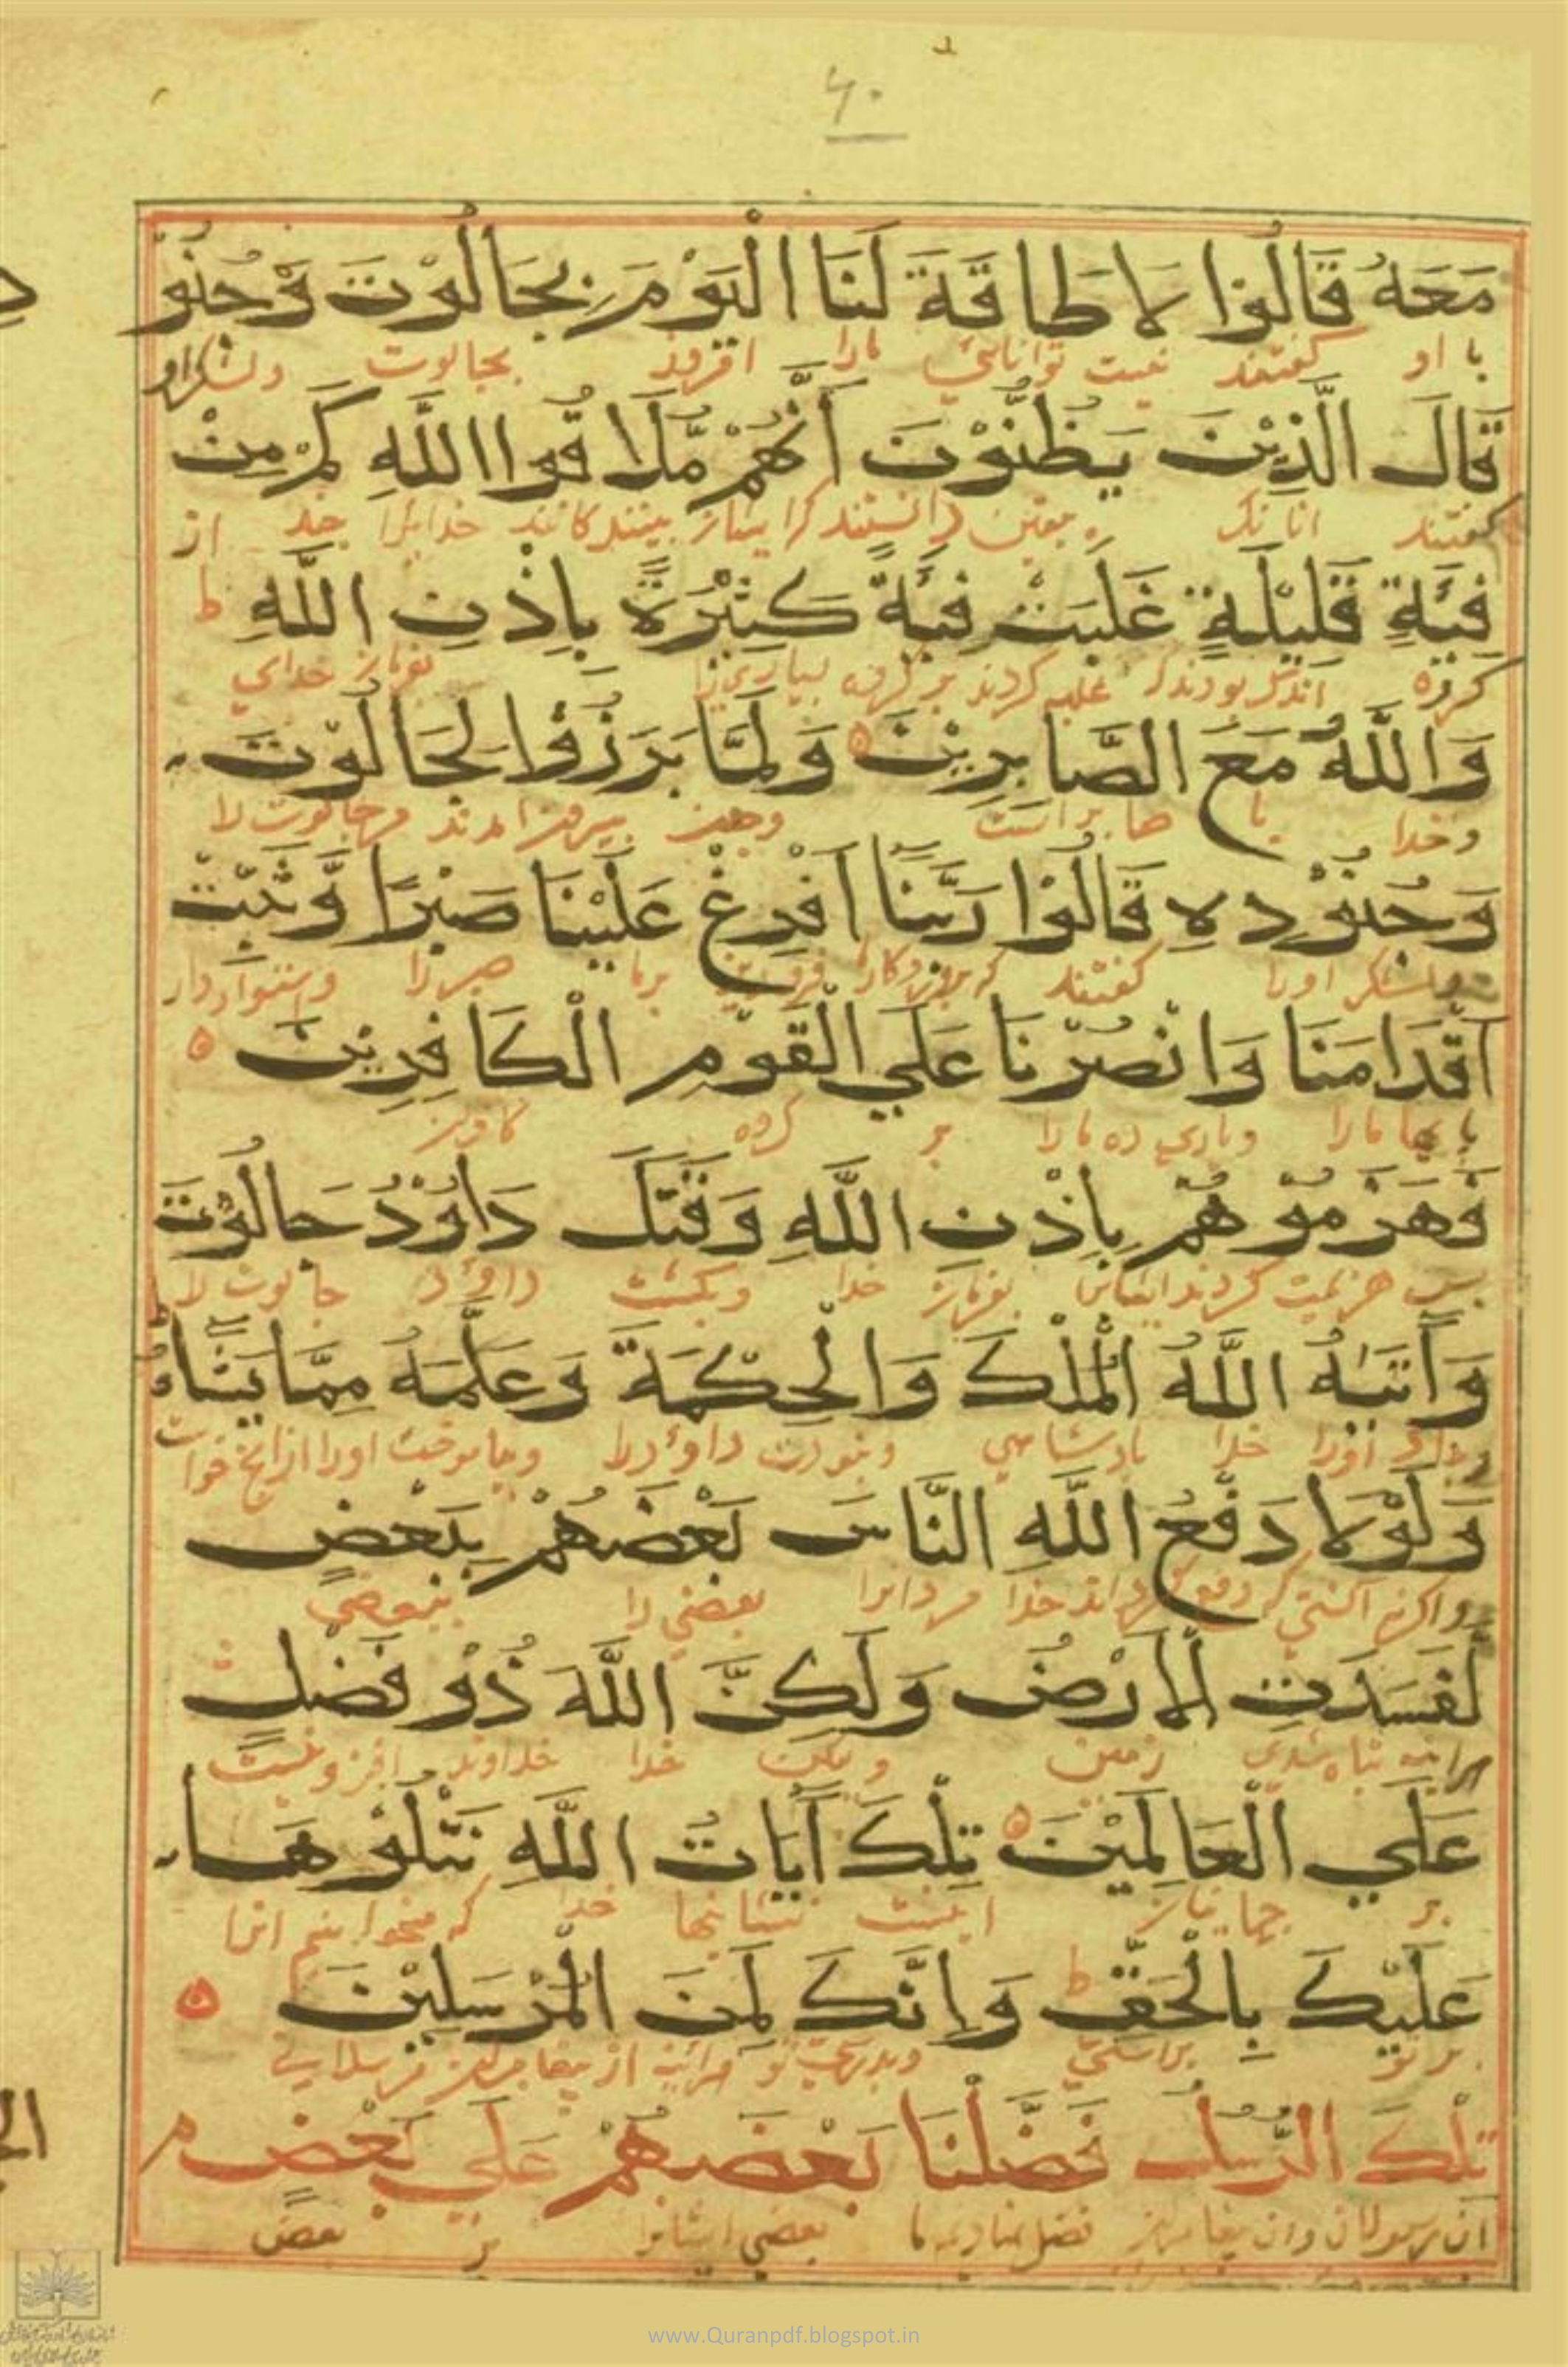 ۶۰
مَعَهُ قَالُوْا لَا طَاقَةَ لَنَا الْيَوْمَ بِجَالُوْتَ وَجُنُوْ
با او گفتند نیست توانائي مارا امروز بجالوت ولشکراو
قَالَ الَّذِيْنَ يَظُنُّوْنَ أَنَّهُمْ مُّلَا قُوا اللَّهِ كَمْ مِنْ
گفتند انانک دانستند بینندکانند خدایرا چند از
فِئَةٍ قَلِيْلَةٍ غَلَبَتْ فِئَةً كَثِيْرَةً بِاِذْنِ اللَّهِ ط
کروه اندک بودندک غلبه کردند بر کروه بسیاری بفرمان خدای
وَاللَّهُ مَعَ الصَّابِرِيْنَ وَلَمَّا بَرَزُوْا لِجَالُوْتَ
وخدا با صابرانست وچون بیرون امدند مرجالوت را
وَجُنُوْدِهِ قَالُوْا رَبَّنَا اَفْرِغْ عَلَيْنَا صَبْرًا وَّثَبِّتْ
ولشکر اورا گفتند برما صبررا واستواردار
اَقْدَامَنَا وَانْصُرْنَا عَلَي الْقَوْمِ الْكَافِرِيْنَ
مارا ویاري ده مارا بر کروه کافران
فَهَزَمُوْهُمْ بِاِذْنِ اللَّهِ وَقَتَلَ دَاوُدُ جَالُوْتَ
پس هزیمت کردند ایشان بفرمان خدا وبکشت داوُد جالوت را
وَآتَيٰهُ اللَّهُ الْمُلْكَ وَالْحِكْمَةَ وَعَلَّمَهُ مِمَّا يَشَاءُ
وداد اورا خدا پادشاهي ونبوت داوُدرا وبیاموخت اورا ازانچ خواست
وَلَوْلَا دَفْعُ اللَّهِ النَّاسَ بَعْضَهُمْ بِبَعْضٍ
واکرنه دفع خدا مردانرا بعضي را ببعضي
لَّفَسَدَتِ الْاَرْضُ وَلَكِنَّ اللَّهَ ذُوْ فَضْلٍ
هراینه تباه شدی زمین ولیکن خدا خداوند افزونیست
عَلَي الْعَالَمِيْنَ تِلْكَ آيَاتُ اللَّهِ نَتْلُوْهَا
بر جهانیان اینست نشانیها خدا که میخوانیم انرا
عَلَيْكَ بِالْحَقِّ ط وَاِنَّكَ لَمِنَ الْمُرْسَلِيْنَ
بر تو براستي وبدرستي تو هراینه از پیغامبران
تِلْكَ الرُّسُلُ فَضَّلْنَا بَعْضَهُمْ عَلَي بَعْضٍ م
ان رسولان وان پیغامبران فضل نهادیم ما بعضي ایشانرا بر بعض
www.Quranpdf.blogspot.in